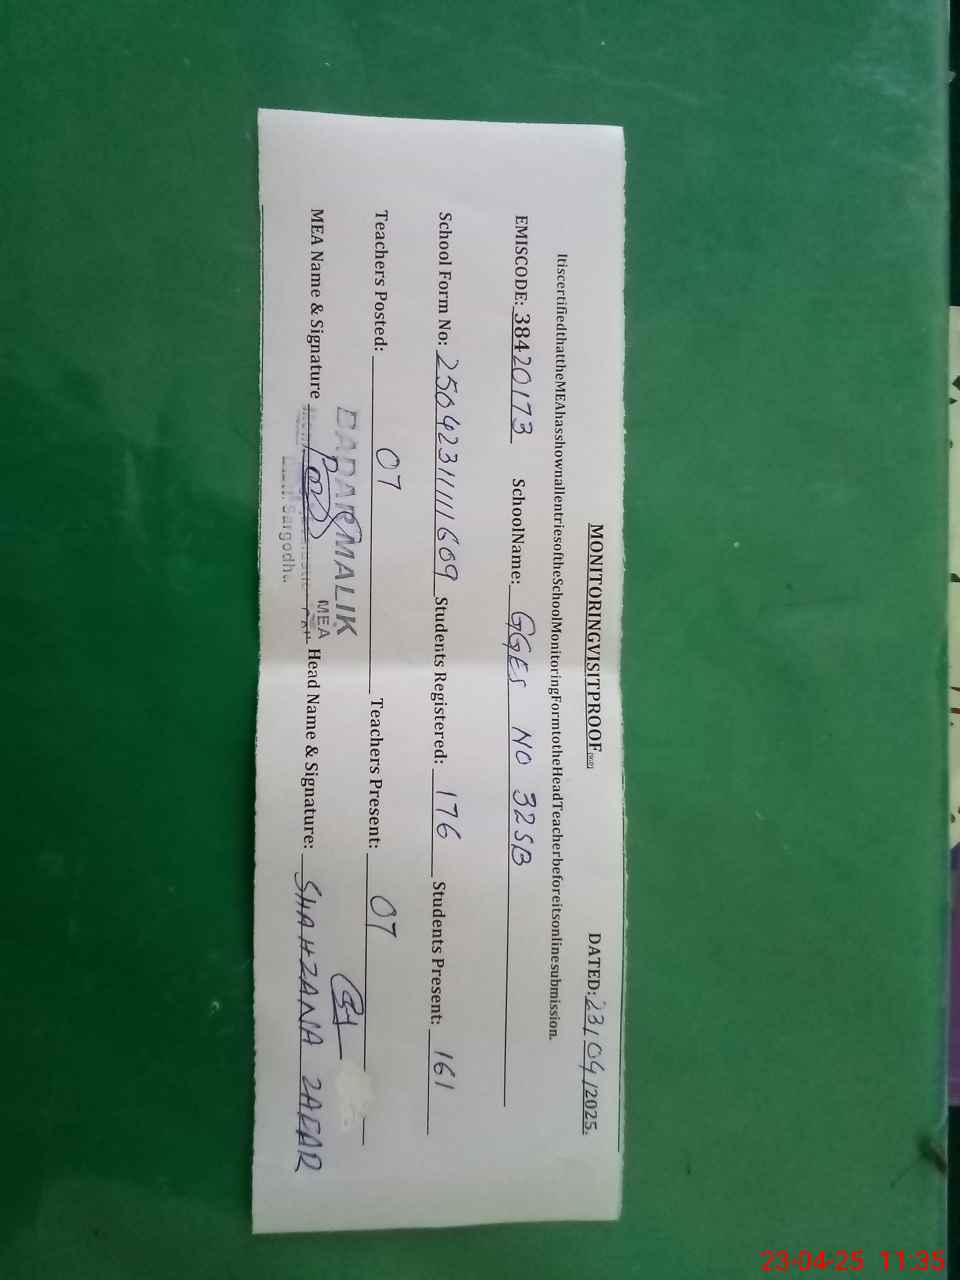 MONITORINGVISITPROOF DATED: 23/04/2025.
ItiscertifiedthattheMEAhasshownallentriesoftheSchoolMonitoringFormtotheHeadTeacherbeforeitsonlinesubmission.
EMISCODE: 38420173 SchoolName: GGES NO 32SB
School Form No: Students Registered: 176 Students Present: 161
Teachers Posted: 07 Teachers Present: 07
MALIK
MEA
MEA Name & Signature Head Name & Signature: SHAHZANA ZAFAR
23-04-25 11:35